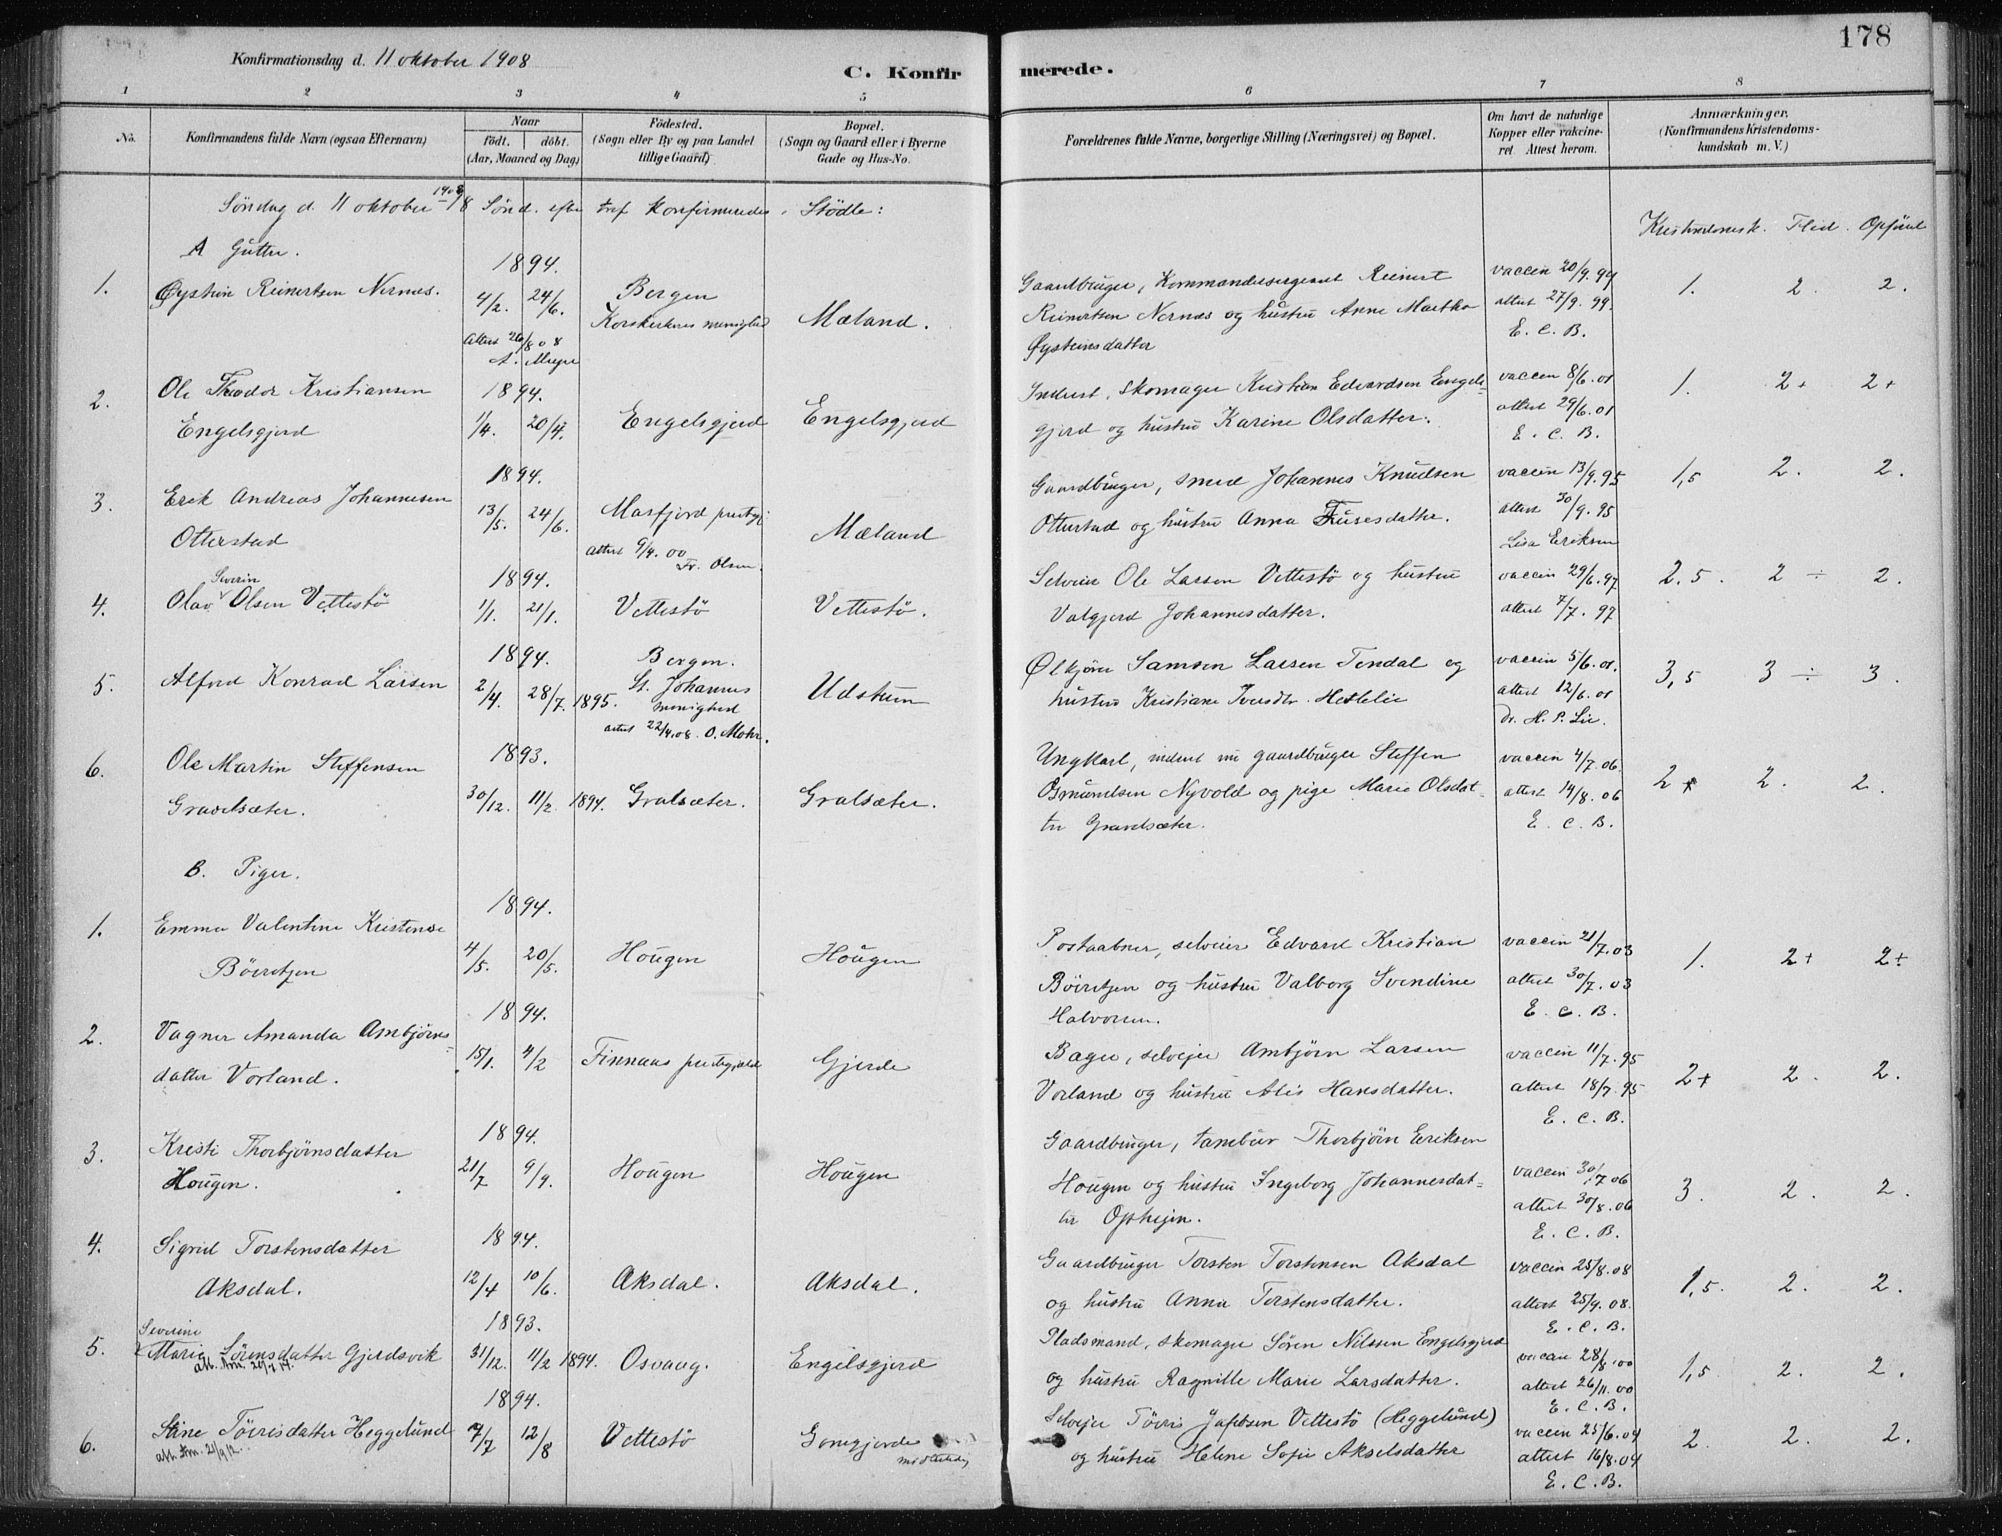 178
Konfirmationsdag d. 11 oktober 1908
C. Konfirmerede.
1 2 3 4 5 6 7 8
No.
Konfirmandens fulde Navn (ogsaa Efternavn)
Naar
födt. döbt.
(Aar, Maaned og Dag)
Födested.
(Sogn eller By og paa Landet
tillige Gaard)
Bopæl.
(Sogn og Gaard eller i Byerne
Gade og Hus-No.
Forældrenes fulde Navne, borgerlige Stilling (Næringsvei) og Bopæl.
Om havt de naturlige
Kopper eller vakcine-
ret Attest herom.
Anmærkninger.
(Konfirmandens Kristendoms-
kundskab m. V.)
Söndag d. 11 oktober 1908 Sönd. efter tref Konfirmeredes i Stödle:
Kristendomsk. Flid. Opförsel
A Gutter.
1. Øystein Reinertsen Nernæs. 1894. 4/2. 24/6. Bergen Korskirkens menighed Mæland.
Attest 26/8 08 A. Meyer
Gaardbruger, Kommandersergeant Reinert
Reinertsen Nernæs og hustru Anne Martha
Øysteinsdatter
vaccin 20/9.99
attest 27/9.99.
E. C. B.
1. 2. 2.
2. Ole Theodor Kristiansen
Engelsgjerd 1894. 1/4. 20/4. Engelsgjerd Engelsgjerd
Inderst, skomager Kristian Edvardsen Engels-
gjerd og hustru Karine Olsdatter.
vaccin 8/6.01
attest 29/6.01
E. C. B.
1. 2+ 2+
3. Erik Andreas Johannesen
Otterstad 1894. 13/5. 24/6. Masfjord prestgj. Mæland
attest 9/4.00 Fr. Olsen.
Gaardbruger, smed Johannes Knudsen
Otterstad og hustru Anna Fusesdatter.
vaccin 13/9.95
attest 30/9.95
Lisa Eriksen
1,5 2. 2.
4. Olav Severin Olsen Vettestö 1894. 1/1. 21/1. Vettestö Vettestö.
Selveier Ole Larsen Vettestö og hustru
Valgjerd Johannesdatter.
vaccin 29/6.97
attest 7/7.97
2.5. 2 ÷ 2.
5. Alfred Konrad Larsen 1894. 2/4. 28/7. 1895. Bergen. St. Johannes menighed Udstrum
attest 22/4.08. O. Mohr.
Ølkjörer Samson Larsen Tendal og
hustru Kristiane Iversdtr. Hetlelie
vaccin 5/6.01.
attest 12/6.01
Dr. H. P. Lie.
3,5 3 ÷ 3.
6. Ole Martin Steffensen
Gravelsæter. 1893. 30/12. 11/2. 1894. Gralsæter. Gralsæter.
Ungkarl, inderst nu gaardbruger Steffen
Osmundsen Nyvold og pige Marie Olsdat-
ter Gravelsæter.
vaccin 4/7.06.
attest 14/8.06
E. C. B.
2+ 2. 2.
B. Piger.
1. Emma Valentine Kristense
Böeretzen 1894. 4/5. 20/5. Hougen Hougen
Postaabner, selveier Edvard Kristian
Böiretzen og hustru Valborg Svendine
Halvorsen.
vaccin 21/7.03
attest 30/7.03
E. C. B.
1. 2+ 2÷
2. Vagner Amanda Ambjörns-
datter Vorland. 1894. 15/1. 4/2 Finnaas prestegjeld Gjerde
Bager, selvejer Ambjörn Larsen
Vorland og hustru Alis Hansdatter.
vaccin 11/7.95
attest 18/7.95
E. C. B.
2+ 2. 2.
3. Kristi Thorbjörnsdatter
Hougen. 1894. 21/7 9/9. Hougen Hougen
Gaardbruger, tambur Thorbjörn Eriksen
Hougen og hustru Ingeborg Johannesdat-
ter Opheim.
vaccin 30/7 06
attest 30/8.06
E. C. B.
3. 2. 2.
4. Sigrid Torstensdatter
Aksdal. 1894. 12/4 10/6. Aksdal. Aksdal.
Gaardbruger Torsten Torstensen Aksdal
og hustru Anna Torstensdatter.
vaccin 25/8.08
attest 25/9.08.
E. C. B.
1,5. 2. 2.
5. Severine Marie Sörensdatter Gjerdsvik 1893. 31/12. 11/2 1894. Osvaag. Engelsgjerd
Pladsmand, skomager Sören Nilssen Engelsgjerd
og hustru Ragnille Marie Larsdatter.
vaccin 28/8.00
attest 26/11.00
E. C. B.
1,5 2. 2.
6. Stine Töresdatter Heggelund 1894. 7/7 12/8 Vettestö Gonegjerde
att. Am. 21/9 12.
Selvejer Töres Jacobsen Vettestö (Heggelund)
og hustru Helene Sofie Akselsdatter
vaccin 25/6.04
attest 16/8.04
E. C. B.
2. 2. 2.